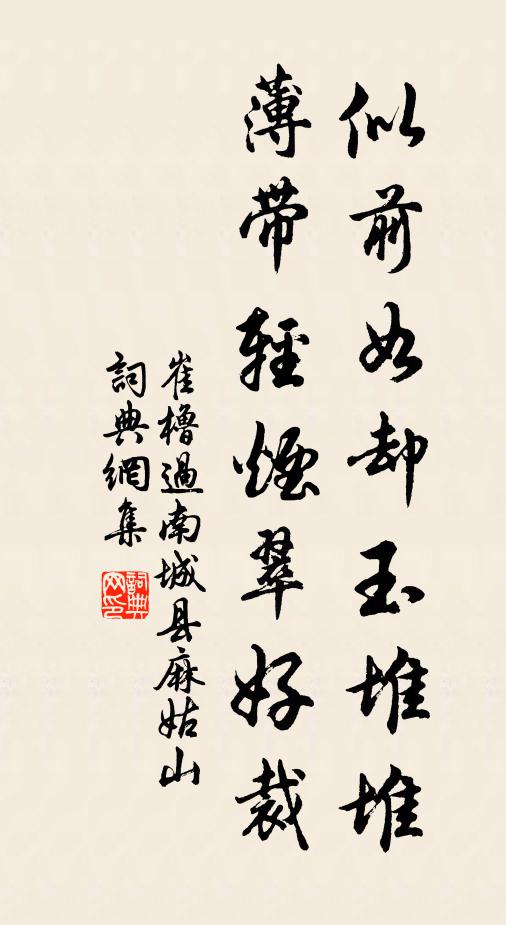 似前如却玉堆堆
薄带輕煙翠好裁
崔櫓過南城县麻姑山
詞典網集
詞典网印